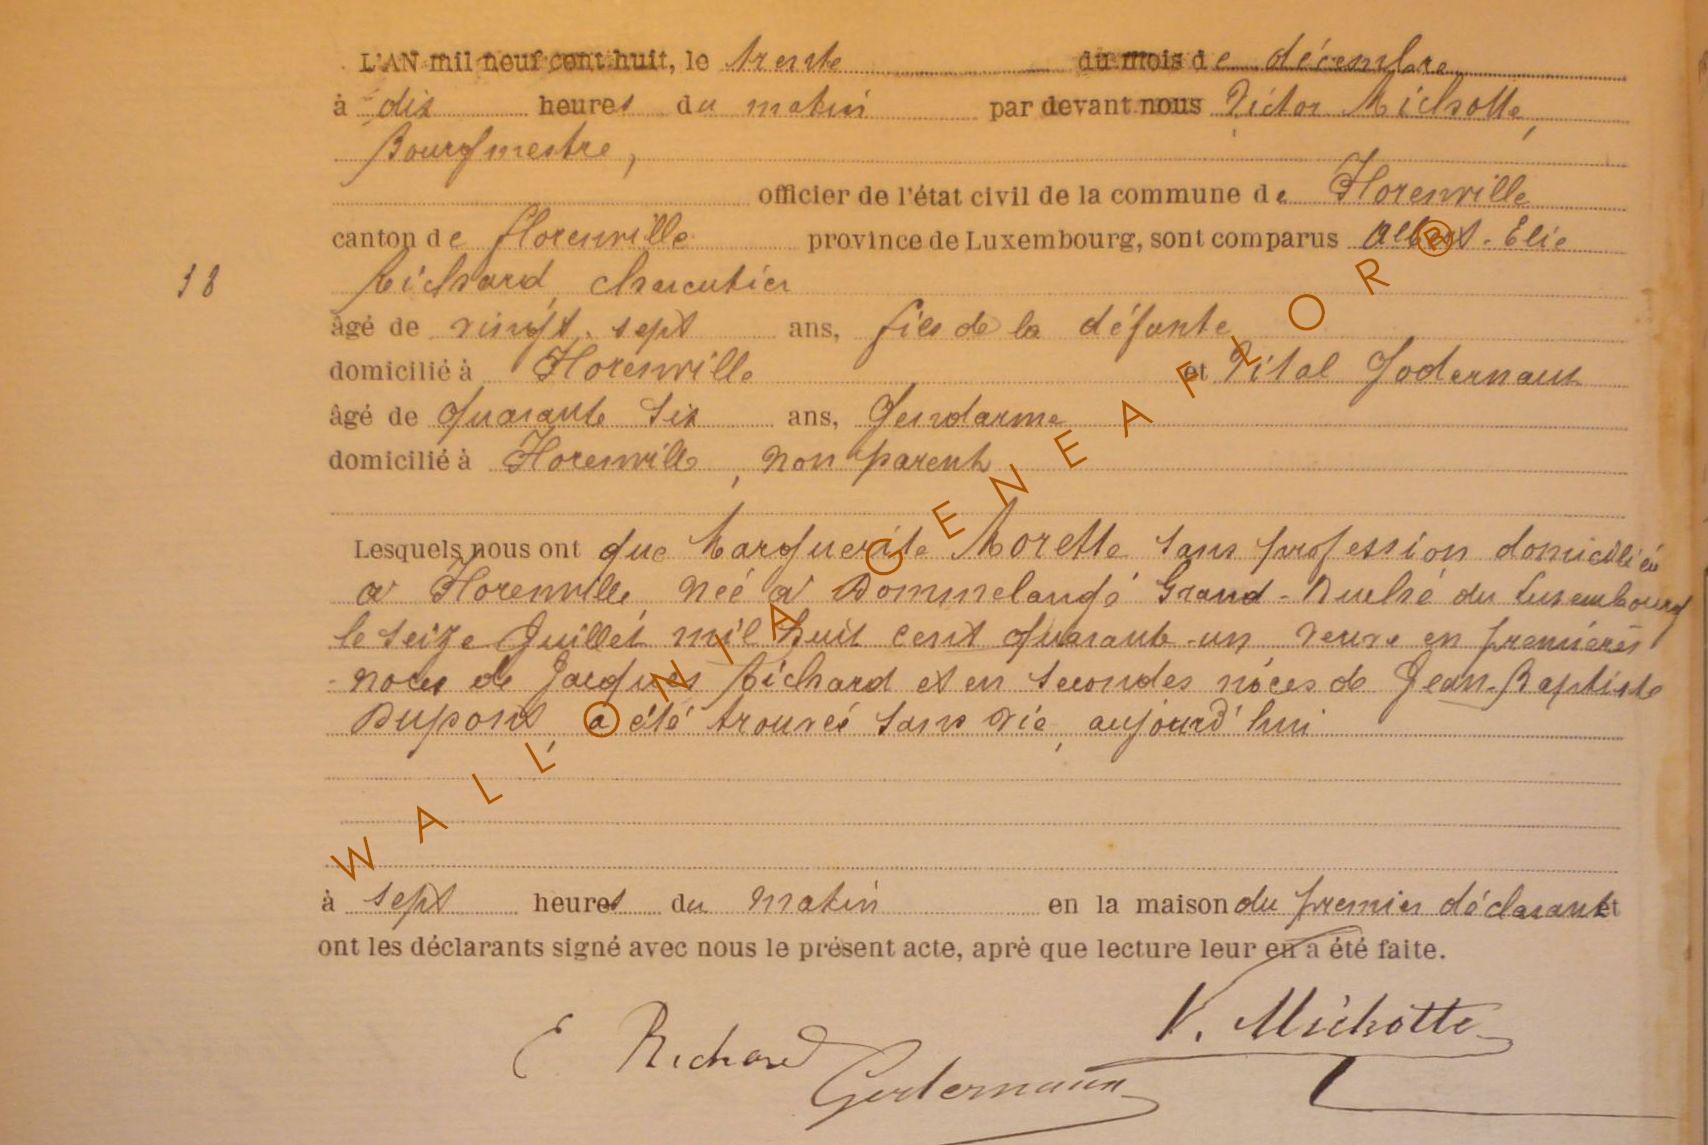 L'AN mil neuf cent huit, le trente du mois de décembre
à dix heures du matin par devant nous Victor Michotte,
Bourgmestre,
officier de l'état civil de la commune de Florenville
canton de florenville province de Luxembourg, sont comparus Albert-Elie
38 Richard, charcutier
âgé de vingt-sept ans, fils de la défunte,
domicilié à Florenville et Vital Godernaux
âgé de quarante six ans, Gendarme
domicilié à Florenville, non parent
Lesquels nous ont que Marguerite Morette sans profession domiciliée
à Florenville, née à Dommelange Grand-Duché du Luxembourg
le seize Juillet mil huit cent quarante-un, veuve en premières
noces de Jacques Richard et en secondes noces de Jean-Baptiste
Dupont, a été trouvée sans vie, aujourd'hui
à sept heures du matin en la maison du premier déclarant et
ont les déclarants signé avec nous le présent acte, apré que lecture leur en a été faite.
V. Michotte
E Richard
Godernaux
WALLONIA GENEAFLOR®